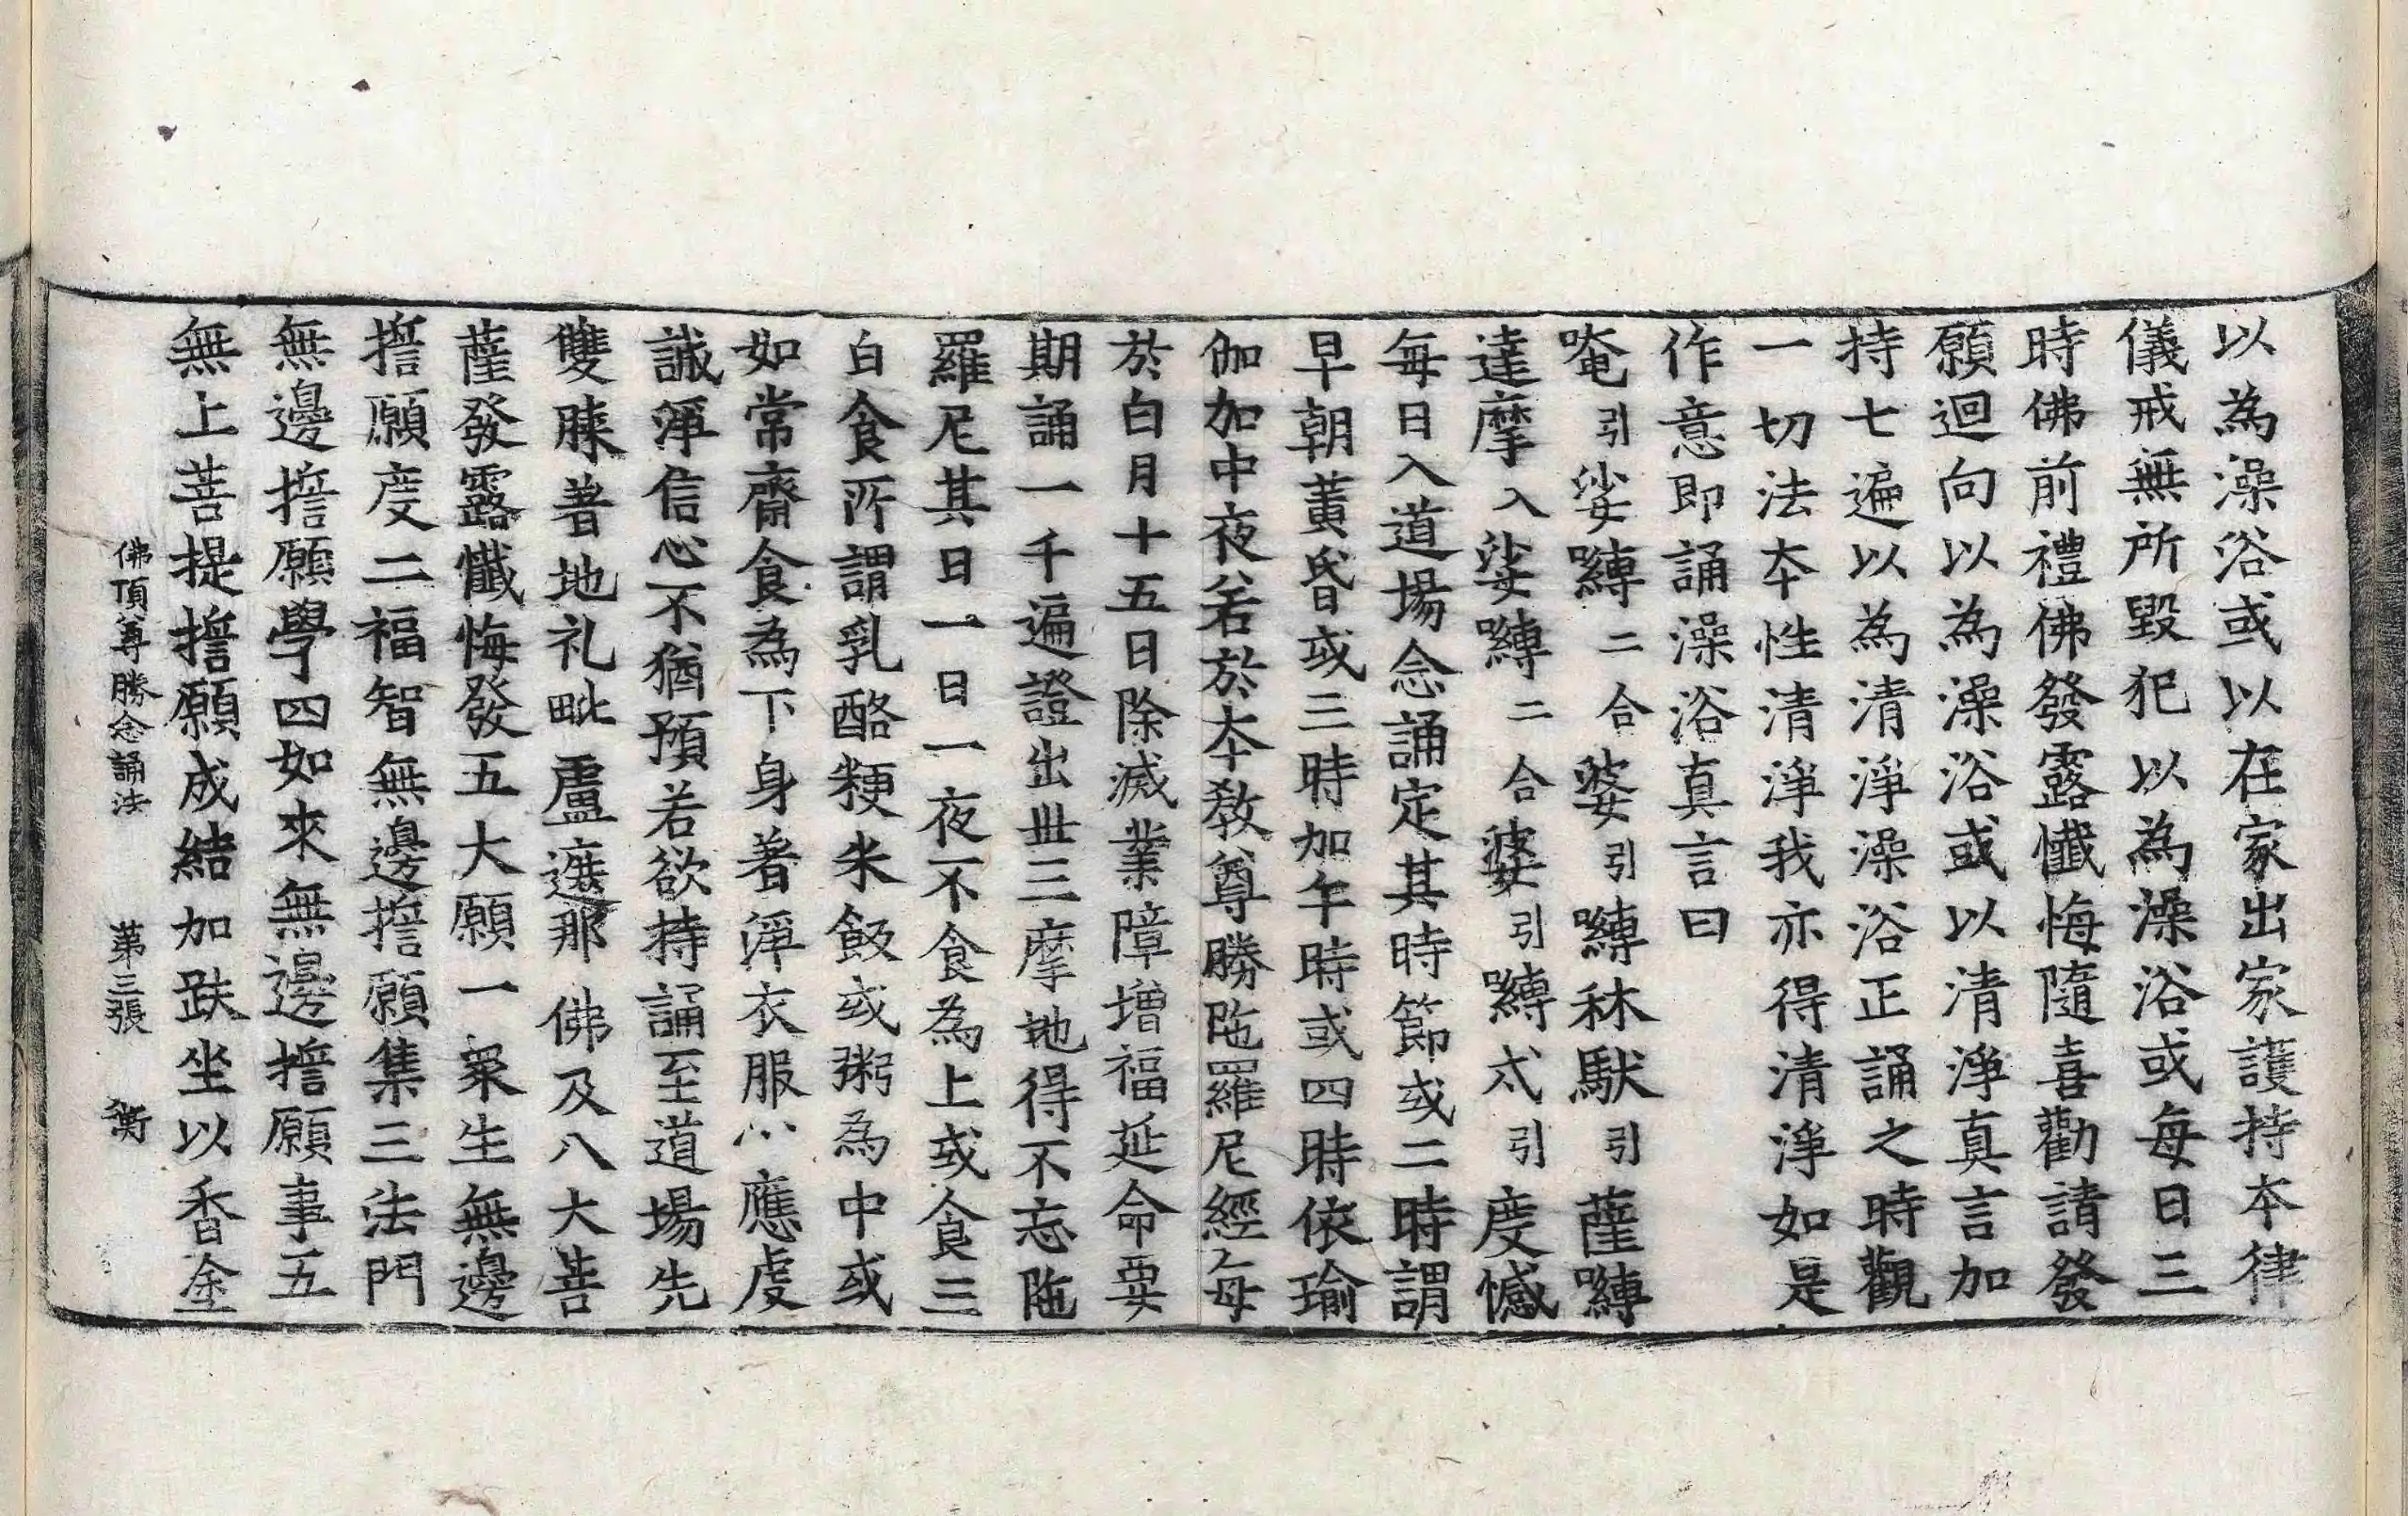 以為澡浴或以在家出家護持本律
儀戒無所毀犯以為澡浴或每日三
時佛前禮佛發露懺悔隨喜勸請發
願迴向以為澡浴或以清淨真言加
持七遍以為清淨澡浴正誦之時觀
一切法本性清淨我亦得清淨如是
作意即誦澡浴真言曰
唵引娑嚩二合婆引嚩秫馱引薩嚩
達摩入娑嚩二合婆引嚩忒引度憾
每日入道場念誦定其時節或二時謂
早朝黃昏或三時加午時或四時依瑜
伽加中夜若於本教尊勝陁羅尼經每
於白月十五日除滅業障增福延命要
期誦一千遍證出世三摩地得不忘陁
羅尼其日一日一夜不食為上或食三
白食所謂乳酪粳米飯或粥為中或
如常齋食為下身著淨衣服心應虔
誠淨信心不猶預若欲持誦至道場先
雙膝著地礼毗盧遮那佛及八大菩
薩發露懺悔發五大願一衆生無邊
誓願度二福智無邊誓願集三法門
無邊誓願學四如來無邊誓願事五
無上菩提誓願成結加趺坐以香塗
佛頂尊勝念誦法 第三張 衡